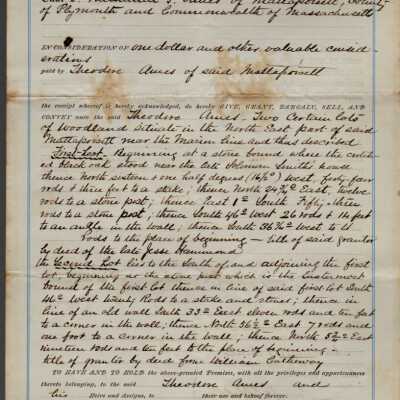 Nathaniel S. Ames of Mattapoisett, County
of Plymouth and Commonwealth of Massachusetts
IN CONSIDERATION OF one dollar and other valuable consid-
erations
paid by Theodore Ames of said Mattapoisett
the receipt whereof is hereby acknowledged, do hereby GIVE, GRANT, BARGAIN, SELL, AND
CONVEY unto the said Theodore Ames - Two Certain lots
of Woodland situate in the North East part of said
Mattapoisett near the Marion line and thus described
First Lot. Beginning at a stone bound where the
black oak stood near the late Solomon Smith's house
thence North sixteen & one half degrees (16½°) West, forty four
rods & three feet to a stake; thence North 24¾° East, twelve
rods to a stone post; thence East 1° South Fifty three
rods to a stone post; thence South 46° West 26 rods & 14 feet
to an angle in the wall; thence South 36¾° West 20
rods to the place of beginning - title of said grantor
by deed of the late Jesse Hammond
the Second Lot lies to the South of, and adjoining the first
lot, beginning at the stone post which is the Easternmost
bound of the first lot thence in line of said first lot South
46° West twenty Rods to a stake and stones; thence in
line of an old wall South 33° East eleven rods and ten feet
to a corner in the wall; thence North 36½° East 7 rods and
one foot to a corner in the wall; thence North East
nineteen rods and ten feet to the place of beginning -
title of grantor by deed from William
TO HAVE AND TO HOLD the above-granted Premises, with all the privileges and appurtenances
thereto belonging, to the said Theodore Ames and
his Heirs and Assigns, to their own use and behoof forever.